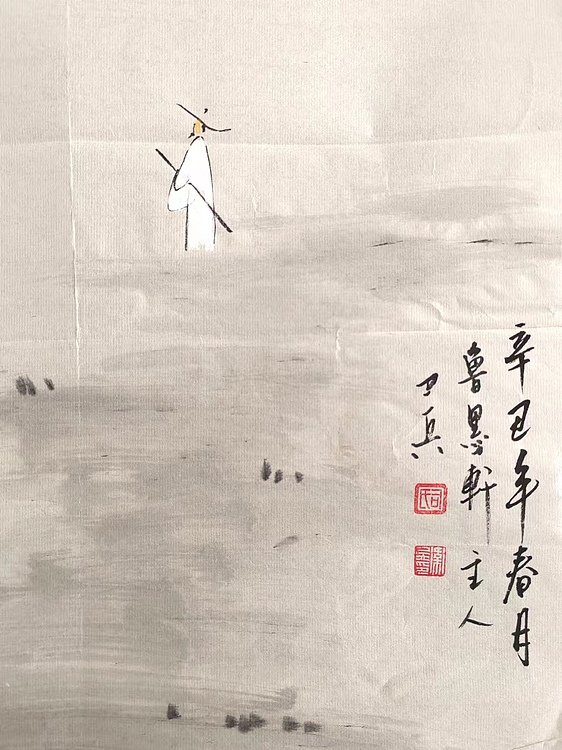 辛丑年春月
魯墨軒主人
卫兵
司氏